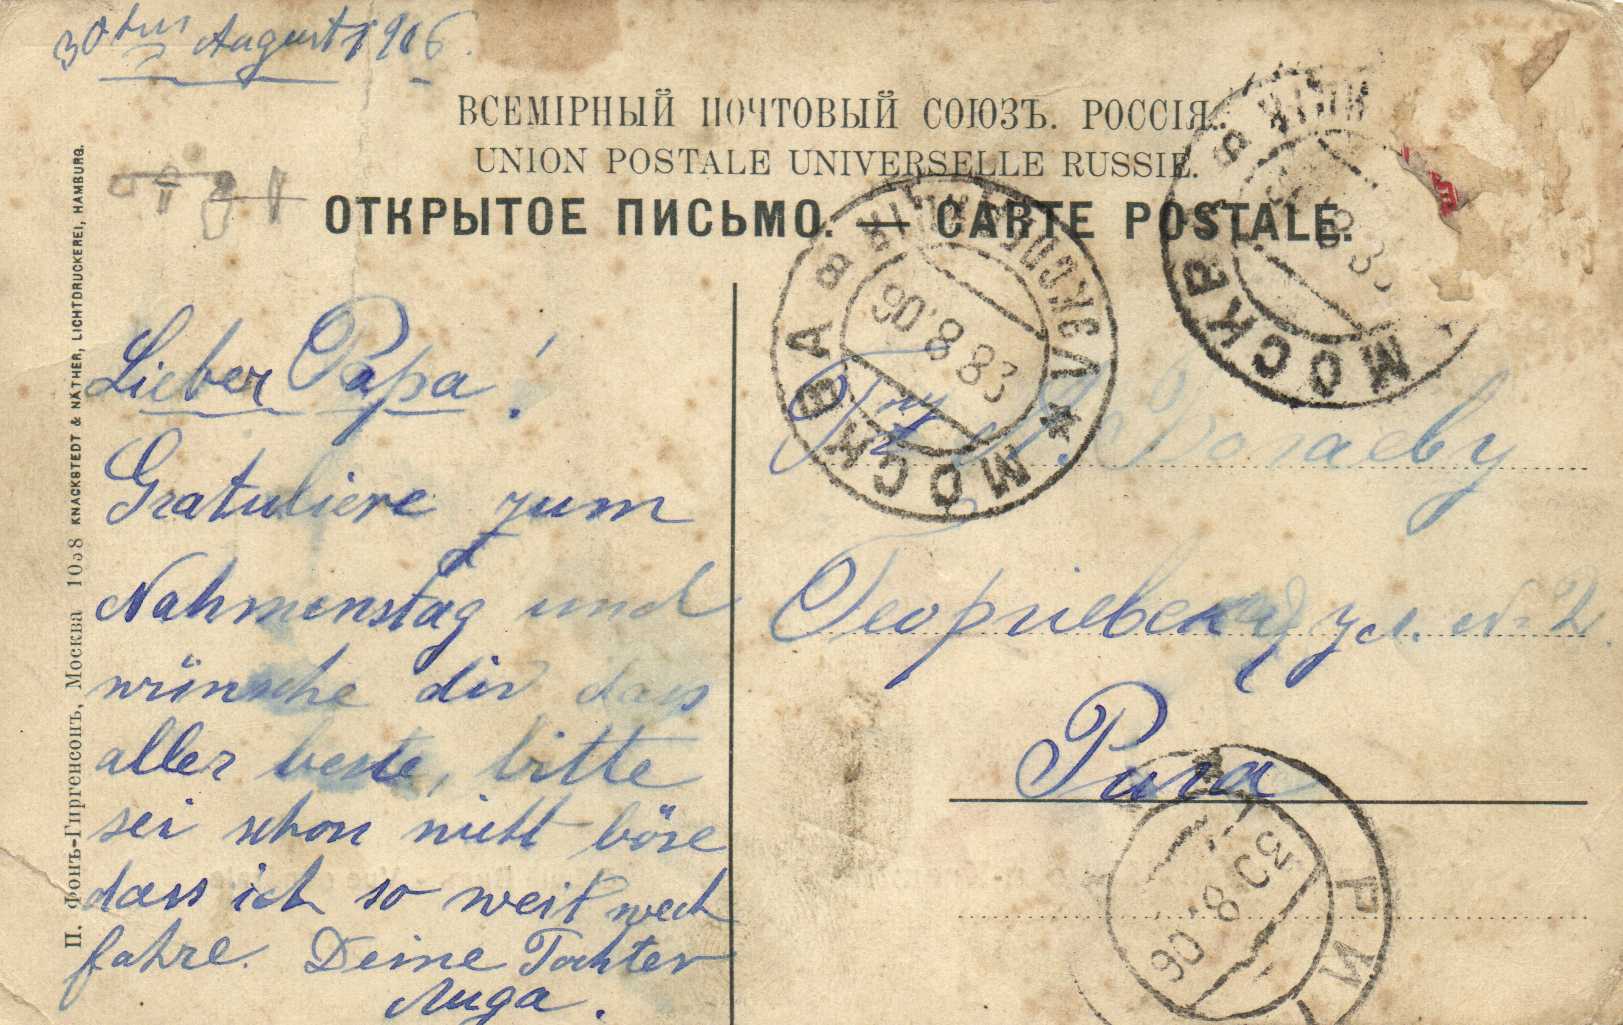 30ten August 1906.
ВСЕМІРНЫЙ ПОЧТОВЫЙ СОЮЗЪ. РОССІЯ.
UNION POSTALE UNIVERSELLE RUSSIE.
ОТКРЫТОЕ ПИСЬМО. — CARTE POSTALE.
П. Фонъ-Гиргенсонъ, Москва KNACKSTEDT & NÄTHER, LICHTDRUCKEREI, HAMBURG.
Lieber Papa!
Gratuliere zum
Nahmenstag und
wünsche dir dass
aller beste, bitte
sei schon nicht böse
dass ich so weit wech
fahre. Deine Tochter
Лида.
МОСКВА
МОСКВА
Георгиевская ул. № 2.
Рига
РИГА